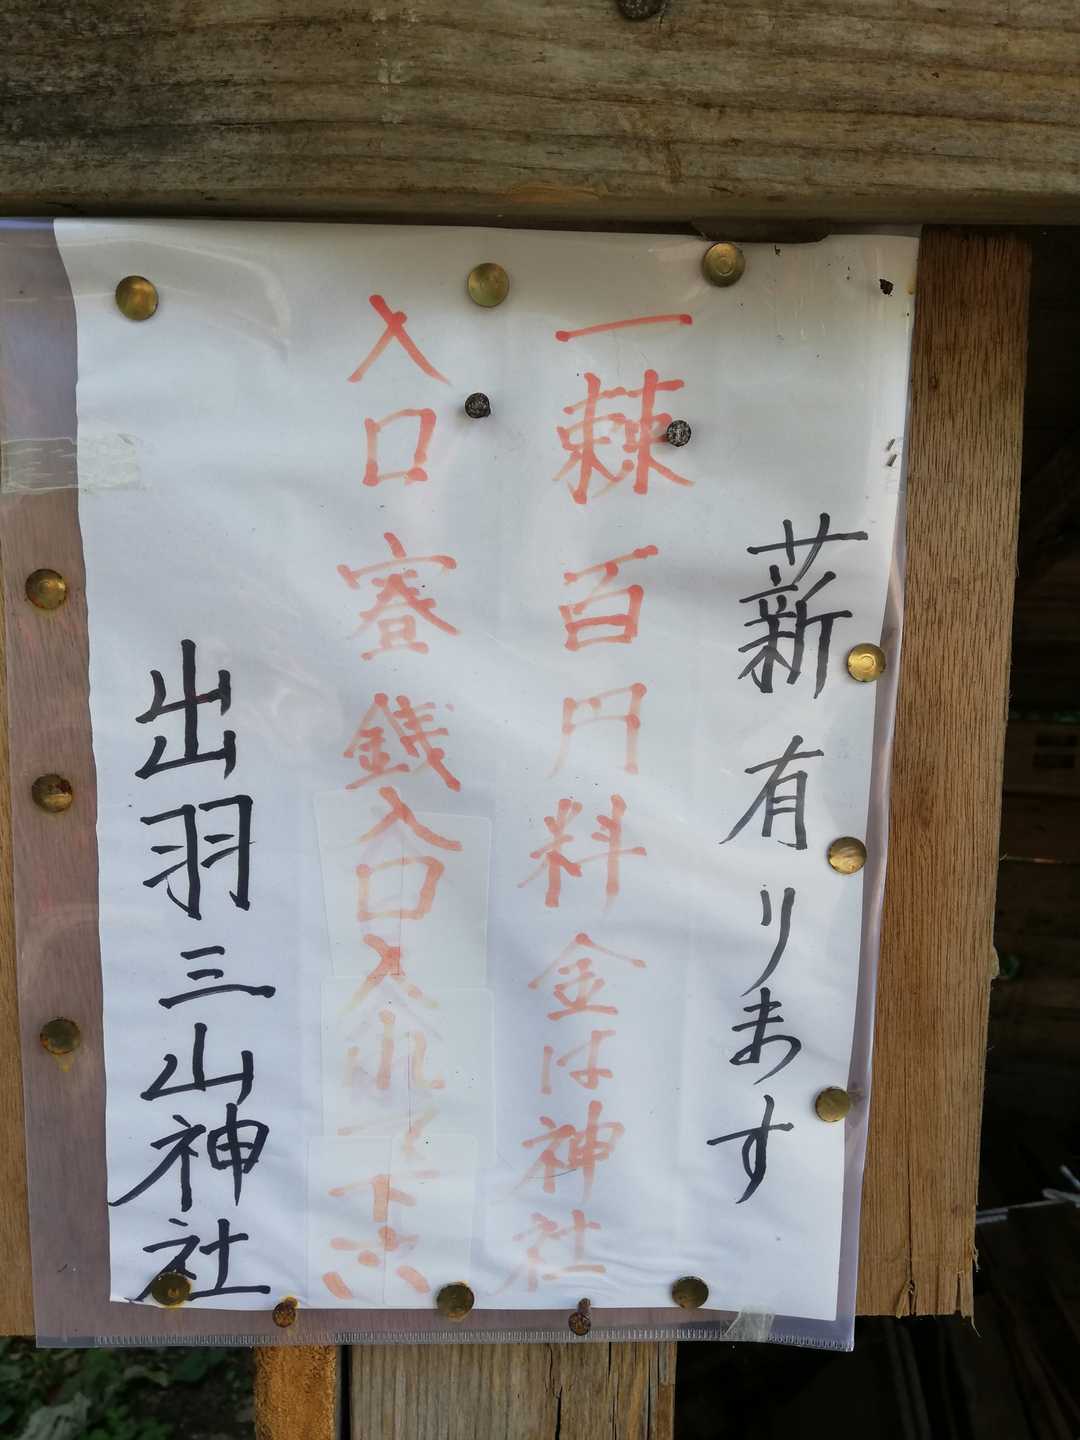 薪有ります
一棘百円料金は神社
入口賽銭入口入れて下さい
出羽三山神社